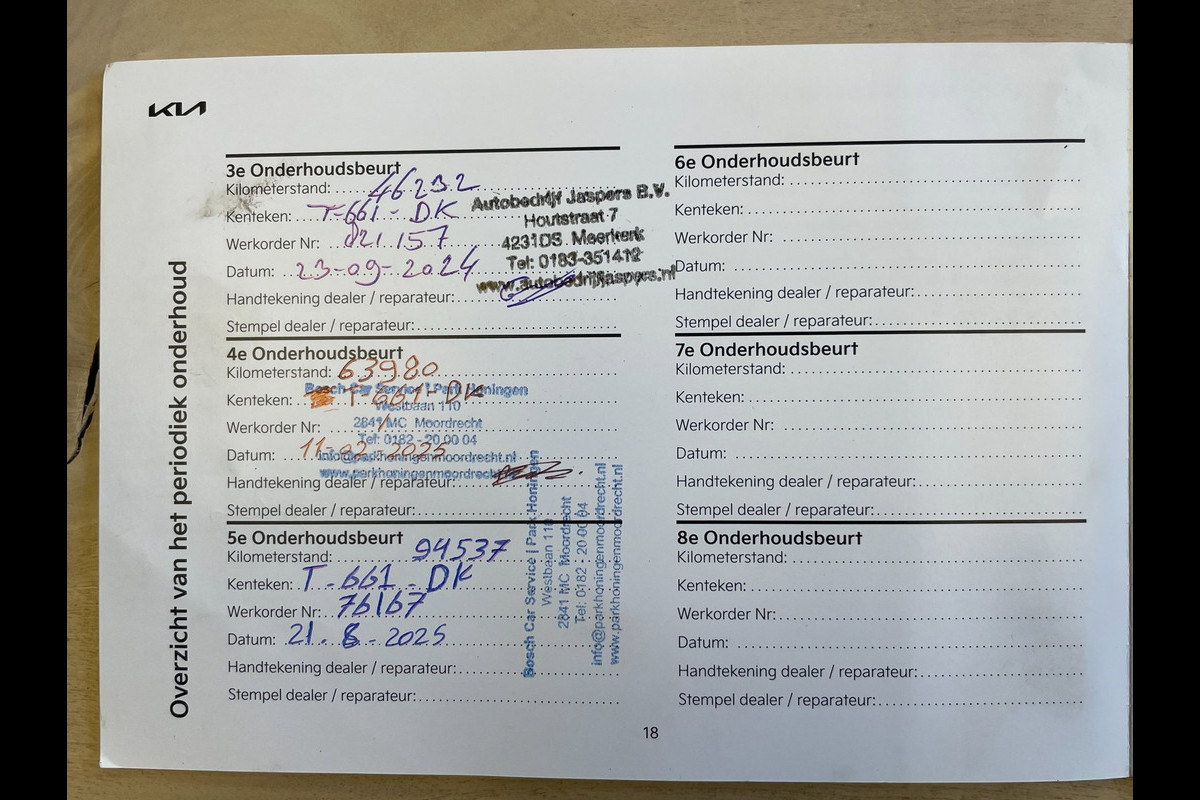 KIA
Overzicht van het periodiek onderhoud
3e Onderhoudsbeurt
Kilometerstand: 46232
Kenteken: T-661-DK
Werkorder Nr: 821157
Datum: 23-09-2024
Handtekening dealer / reparateur:
Stempel dealer / reparateur:
Autobedrijf Jaspers B.V.
Houtstraat 7
4231DS Meerkerk
Tel: 0183-351412
www.autobedrijfjaspers.nl
4e Onderhoudsbeurt
Kilometerstand: 63980
Kenteken: T-661-DK
Werkorder Nr: /
Datum: 11-02-2025
Handtekening dealer / reparateur:
Stempel dealer / reparateur:
Bosch Car Service | Park Honingen
Westbaan 110
2841 MC Moordrecht
Tel: 0182 - 20 00 04
info@parkhoningenmoordrecht.nl
www.parkhoningenmoordrecht.nl
5e Onderhoudsbeurt
Kilometerstand: 94537
Kenteken: T-661-DK
Werkorder Nr: 76167
Datum: 21.8-2025
Handtekening dealer / reparateur:
Stempel dealer / reparateur:
Bosch Car Service | Park Honingen
Westbaan 110
2841 MC Moordrecht
Tel: 0182 - 20 00 04
info@parkhoningenmoordrecht.nl
www.parkhoningenmoordrecht.nl
6e Onderhoudsbeurt
Kilometerstand:
Kenteken:
Werkorder Nr:
Datum:
Handtekening dealer / reparateur:
Stempel dealer / reparateur:
7e Onderhoudsbeurt
Kilometerstand:
Kenteken:
Werkorder Nr:
Datum:
Handtekening dealer / reparateur:
Stempel dealer / reparateur:
8e Onderhoudsbeurt
Kilometerstand:
Kenteken:
Werkorder Nr:
Datum:
Handtekening dealer / reparateur:
Stempel dealer / reparateur:
18